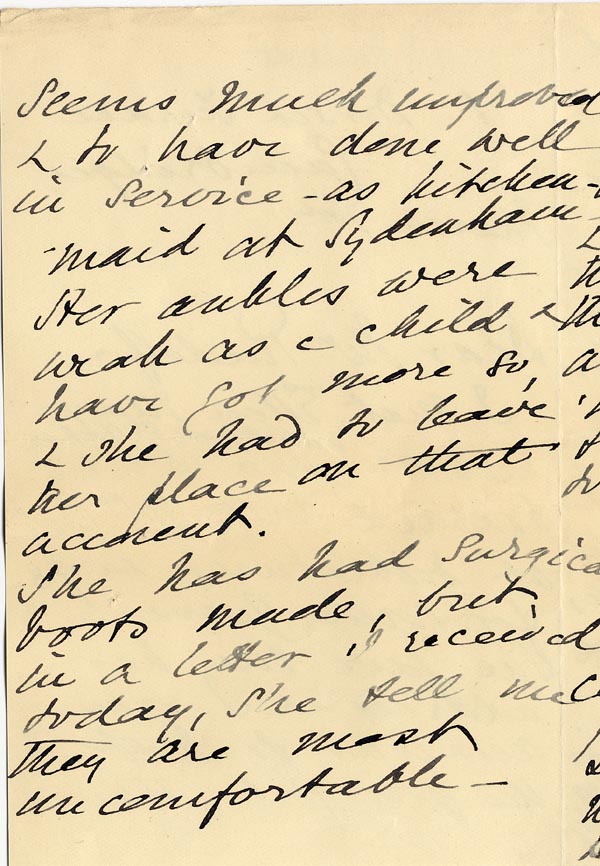 Seems much improved
& to have done well
in service - as kitchen-
-maid at Sydenham -
Her ankles were
weak as a child &
have got more so,
& she had to leave
her place on that
account.
She has had surgica
boots made, but,
in a letter I received
today, she tell me
they are most
uncomfortable -